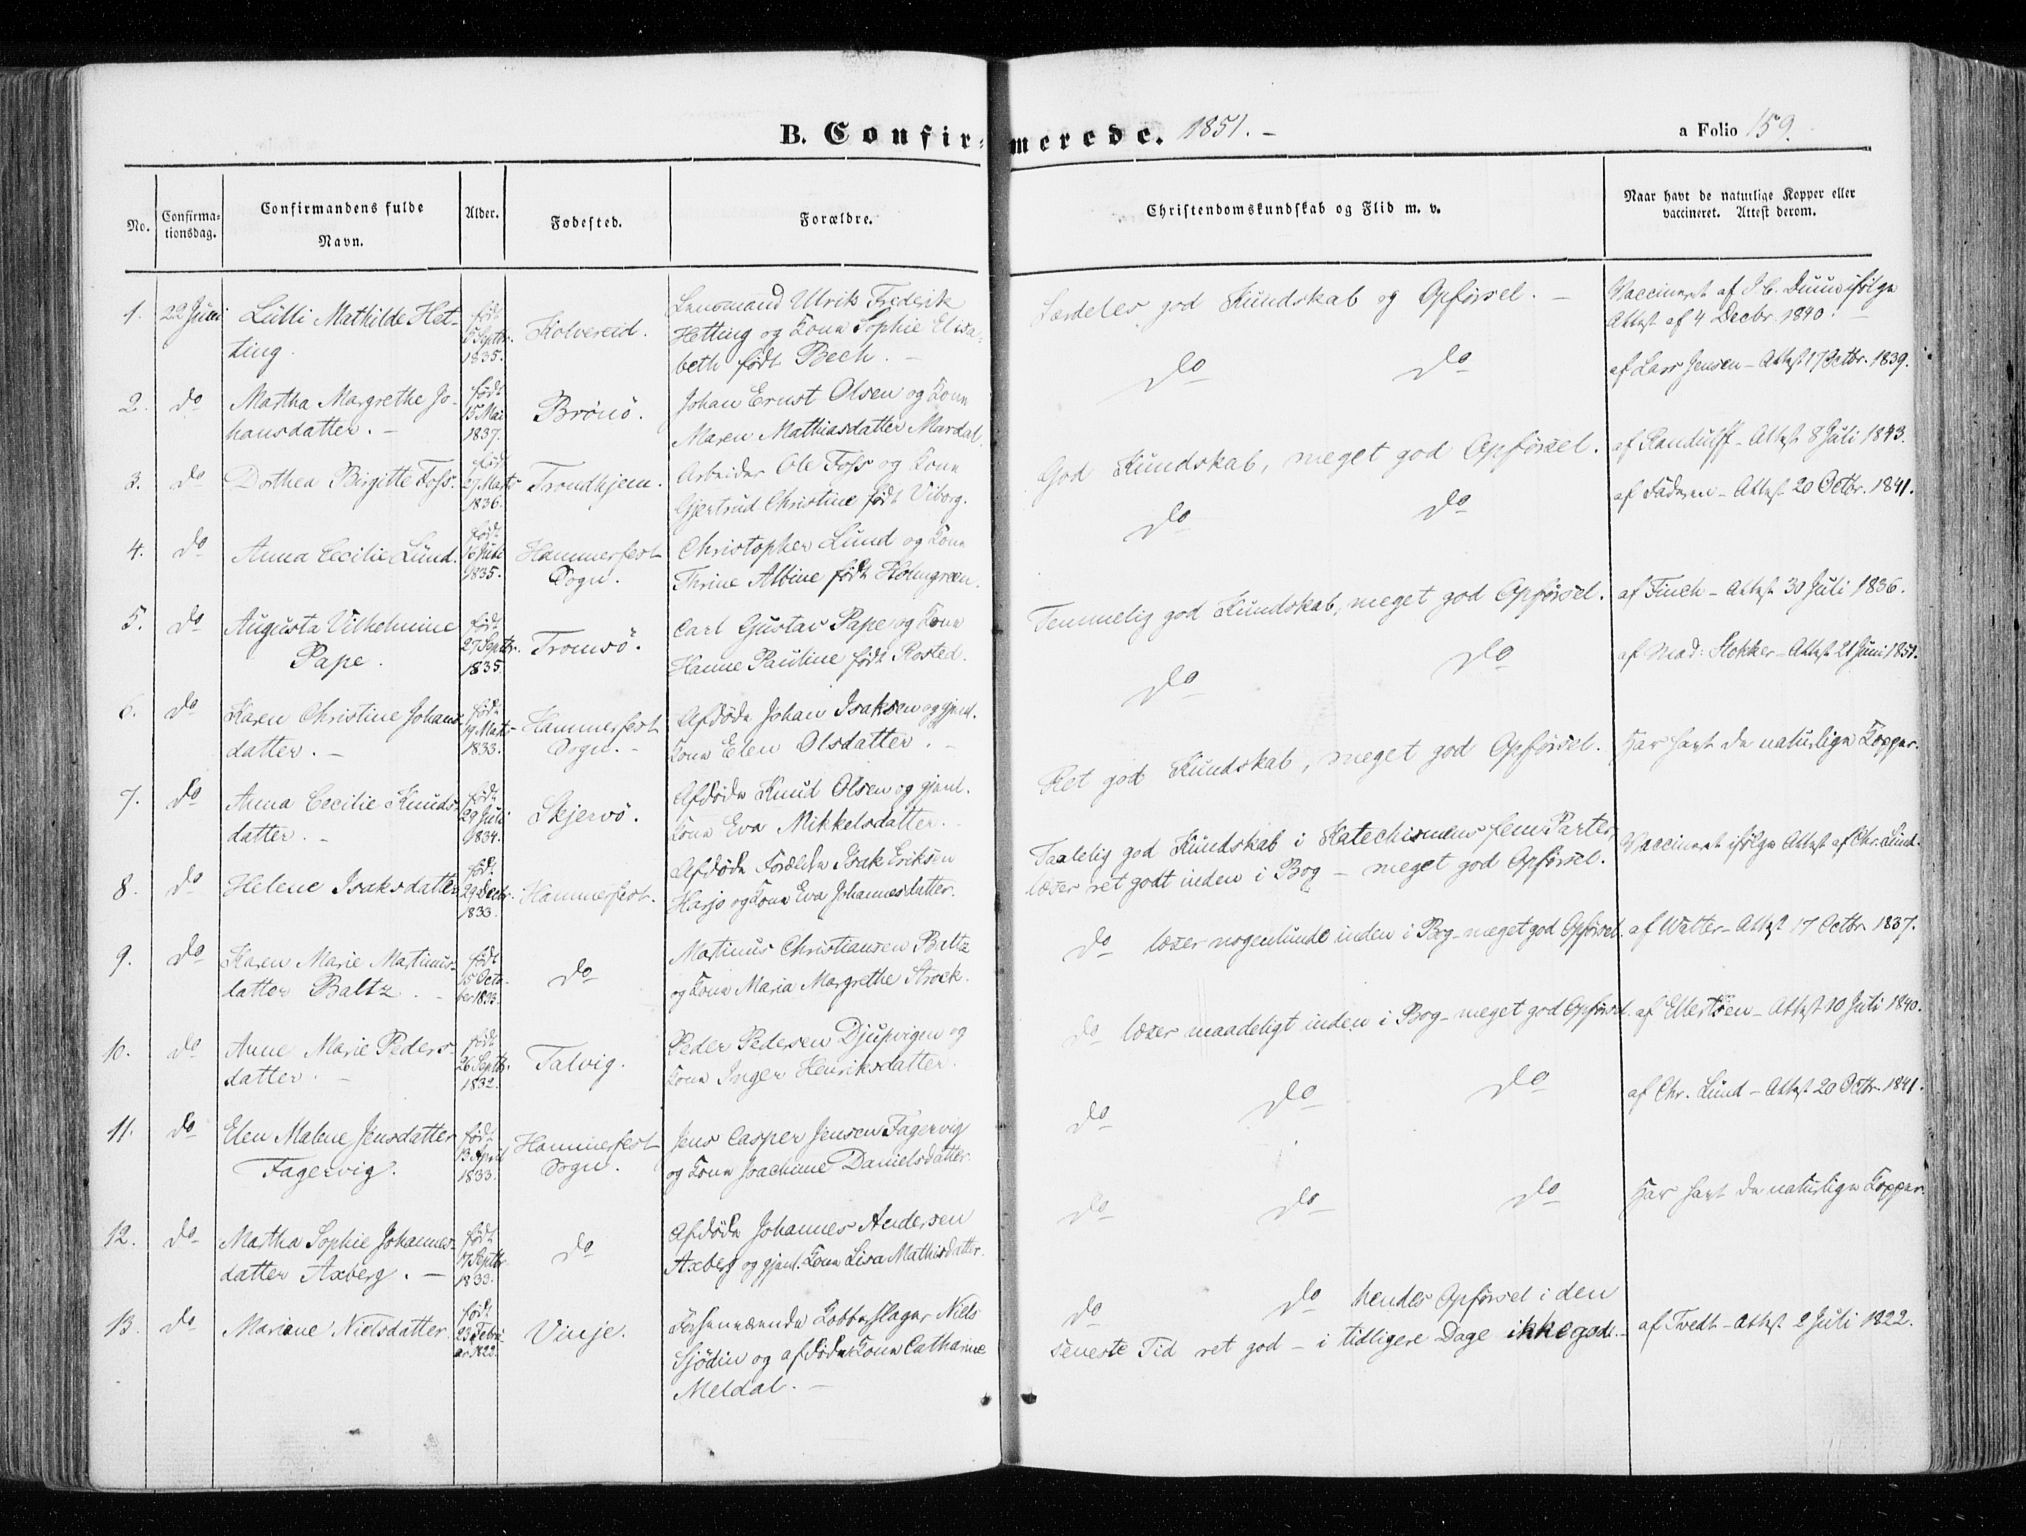 B. Confir- merede. 1851. -
a Folio 159.
No.
Confirma-
tionsdag.
Confirmandens fulde
Navn.
Alder.
Fødested.
Forældre.
Christendomskundskab og Flid m. v.
Naar havt de naturlige Kopper eller
vaccineret. Attest derom.
1. 22 Juni Lulli Mathilde Het-
ting.
født
Septbr.
1835.
Kolvereid.
Lensmand Ulrik Frederik
Hetting og Kone Sophie Elisa-
beth født Bech. -
Særdeles god Kundskab og Opførsel. -
Vaccineret af J. C. Duun ifølge
Attest af 4 Decbr. 1840. -
2. do Martha Margrethe Jo-
hansdatter. -
født
15 Mai
1837.
Brönö.
Johan Ernst Olsen og Kone
Maren Mathiasdatter Mardal.
do do
af Lars Jensen - Attest 17 Octbr. 1839.
3. do Dorthea Birgitte Foss.
født
27 Marts
1836.
Trondhjem.
Arbeider Ole Foss og Kone
Gjertrud Christine født Viborg.
God Kundskab, meget god Opførsel.
af Randulff - Attest 8 Juli 1843.
4. do Anna Cecilie Lund.
født
Juli
1835.
Hammerfest
Sogn.
Christopher Lund og Kone
Thrine Albine født Holmgreen.
do do
af Faderen - Attest 20 Octbr. 1841.
5. do Augusta Vilhelmine
Pape.
født
27 Septbr.
1835.
Tromsö.
Carl Gustav Pape og Kone
Hanne Pauline født Rosted.
Temmelig god Kundskab, meget god Opførsel.
af Finch - Attest 30 Juli 1836.
6. do Karen Christine Johans-
datter. -
født
19 Marts
1833.
Hammerfest
Sogn. -
Afdøde Johan Isaksen og gjenl.
Kone Elen Olsdatter. -
do do
af Mad: Stokker - Attest 21 Juni 1851.
7. do Anna Cecilie Knuds-
datter. -
født
29 Juli
1834.
Skjervö.
Afdøde Knud Olsen og gjenl.
Kone Eva Mikkelsdatter. -
Ret god Kundskab, meget god Opførsel.
Har havt de naturlige Kopper.
8. do Helene Isaksdatter
født
29 Decbr.
1833.
Hammerfest.
Afdøde Forældre Isak Eriksen
Harjo og Kone Eva Johannesdatter.
Taalelig god Kundskab i Katechismens fem Parter,
læser ret godt inden i Bog - meget god Opførsel.
Vaccineret ifølge Attest af Chr. Lund.
9. do Karen Marie Martinus-
datter Baltz. -
født
15 Octo-
ber 1833.
do
Martinus Christiansen Baltz
og Kone Maria Margrethe Strock.
do læser nogenlunde inden i Bog - meget god Opførsel.
af Watter - Attest 17 Octbr. 1837.
10. do Anne Marie Peders-
datter. -
født
26 Septbr.
1832.
Talvig.
Peder Pedersen Djupvigen og
Kone Inger Henriksdatter.
do læser maadeligt inden i Bog - meget god Opførsel.
af Ellertsen - Attest 10 Juli 1840.
11. do Elen Malene Jensdatter
Fagervig.
født
13 April
1833.
Hammerfest
Sogn.
Jens Casper Jensen Fagervig
og Kone Joachime Danielsdatter.
do do do
af Chr. Lund - Attest 20 Octbr. 1841.
12. do Martha Sophie Johannes-
datter Axberg. -
født
17 Septbr.
1833.
do
Afdøde Johannes Andersen
Axberg og gjenl. Kone Lisa Mathisdatter.
do do do
Har havt de naturlige Kopper.
13. do Mariane Nielsdatter.
født
23 Febru-
ar 1822.
Vinje.
Forhenværende Kobberslager Niels
Sjödin og afdøde Kone Catharine
Meldal. -
do do hendes Opførsel i den
seneste Tid ret god - i tidligere Dage ikke god. -
af Tvedt - Attest 2 Juli 1822.